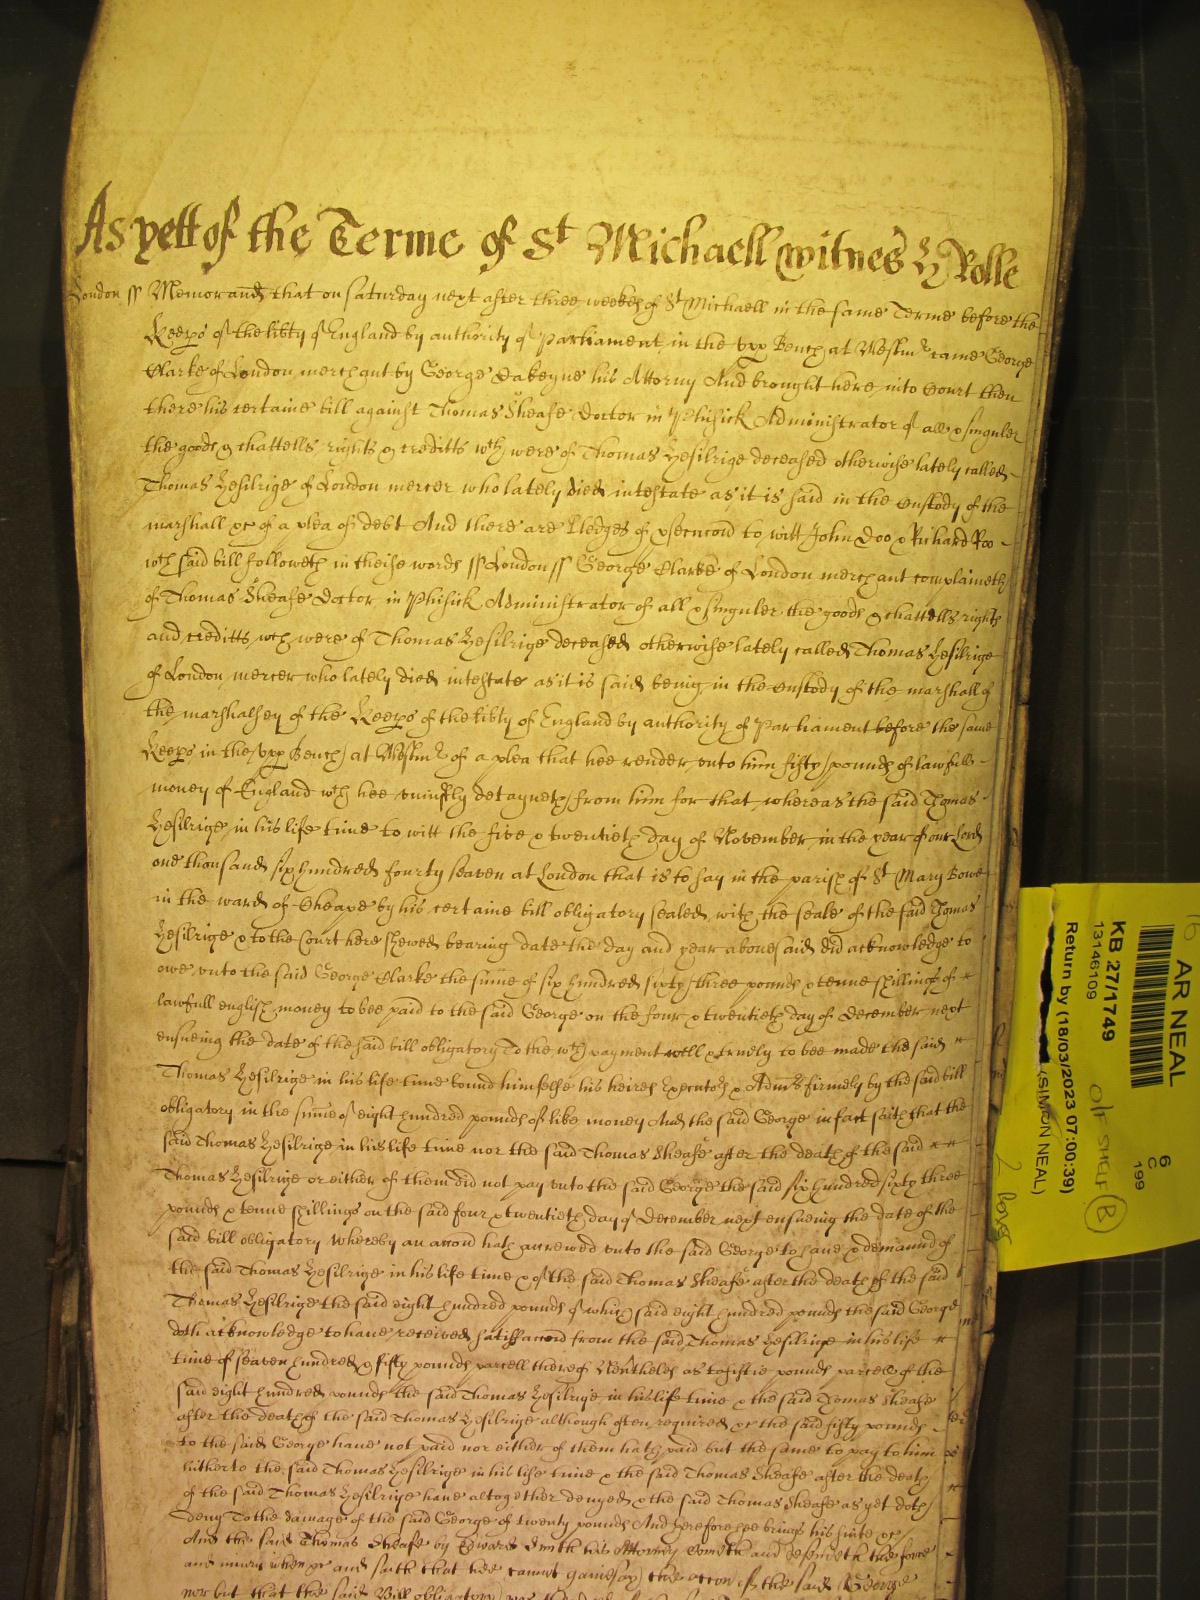 As yett of the Terme of St Michaell witnes H Rolle
London ss Memorand that on saturday next after three weekes of St Michaell in the same Terme before the
Keeps of the libty of England by authority of Parliament in the Upp Bench at Westm came George
Clarke of London merchant by George Dakeyne his Attorny And brought here into Court then
there his certaine bill against Thomas Sheafe Doctor in Phisick Administrator of all & singuler
the goods & chattells rights & creditts wch were of Thomas Hesilrige deceased otherwise lately called
Thomas Hesilrige of London mercer who lately died intestate as it is said in the custody of the
marshall &c of a plea of debt And there are Pledges of psecucion to witt John Doo & Richard Roo
wch said bill followeth in theise words ss London ss George Clarke of London merchant complaineth
of Thomas Sheafe Doctor in Phisick Administrator of all & singuler the goods & chattells rights
and creditts wch were of Thomas Hesilrige deceased otherwise lately called Thomas Hesilrige
of London mercer who lately died intestate as it is said being in the custody of the marshall of
the marshalsey of the Keeps of the libty of England by authority of Parliament before the same
Keeps in the Upp Bench at Westm of a plea that hee render unto him fifty pounds of lawfull
money of England wch hee uniustly detayneth from him for that whereas the said Thomas
Hesilrige in his life time to witt the five & twentieth day of November in the year of our Lord
one thousand six hundred fourty seaven at London that is to say in the parish of St Mary Bowe
in the ward of Cheape by his certaine bill obligatory sealed with the seale of the said Thomas
Hesilrige & to the Court here shewed bearing date the day and year abovesaid did acknowledge to
owe unto the said George Clarke the sume of six hundred sixty three pounds & tenne shillings of
lawfull english money to bee paid to the said George on the four & twentieth day of December next
ensueing the date of the said bill obligatory To the wch payment well & truely to bee made the said
Thomas Hesilrige in his life time bound himselfe his heires Executors & Adms firmely by the said bill
obligatory in the sume of eight hundred pounds of like money And the said George in fact saith that the
said Thomas Hesilrige in his life time nor the said Thomas Sheafe after the death of the said
Thomas Hesilrige or either of them did not pay unto the said George the said six hundred sixty three
pounds & tenne shillings on the said four & twentieth day of December next ensueing the date of the
said bill obligatory Whereby an accion hath accrewed unto the said George to have & demaund of
the said Thomas Hesilrige in his life time & of the said Thomas Sheafe after the death of the said
Thomas Hesilrige the said eight hundred pounds of which said eight hundred pounds the said George
doth acknowledge to have received satisfaccion from the said Thomas Hesilrige in his life
time of seaven hundred & fifty pounds parcell thereof Neverthelesse as to fiftie pounds parcell of the
said eight hundred pounds the said Thomas Hesilrige in his life time & the said Thomas Sheafe
after the death of the said Thomas Hesilrige although often required &c the said fifty pounds
to the said George have not paid nor either of them hath paid but the same to pay to him
hitherto the said Thomas Hesilrige in his life time & the said Thomas Sheafe after the death
of the said Thomas Hesilrige have altogether denyed & the said Thomas Sheafe as yet doth
deny To the damage of the said George of twenty pounds And therefore hee brings his suite &c
And the said Thomas Sheafe by Edward Smith his Attorney cometh and defendeth the force
and iniury when &c and saith that hee cannot gainesay the accion of the said George
nor but that the said Bill obligatory
AR NEAL
KB 27/1749
13146109
Return by (18/03/2023 07:00:39)
(SIMON NEAL)
6
C
199
O/F SHELF B
2 boxes